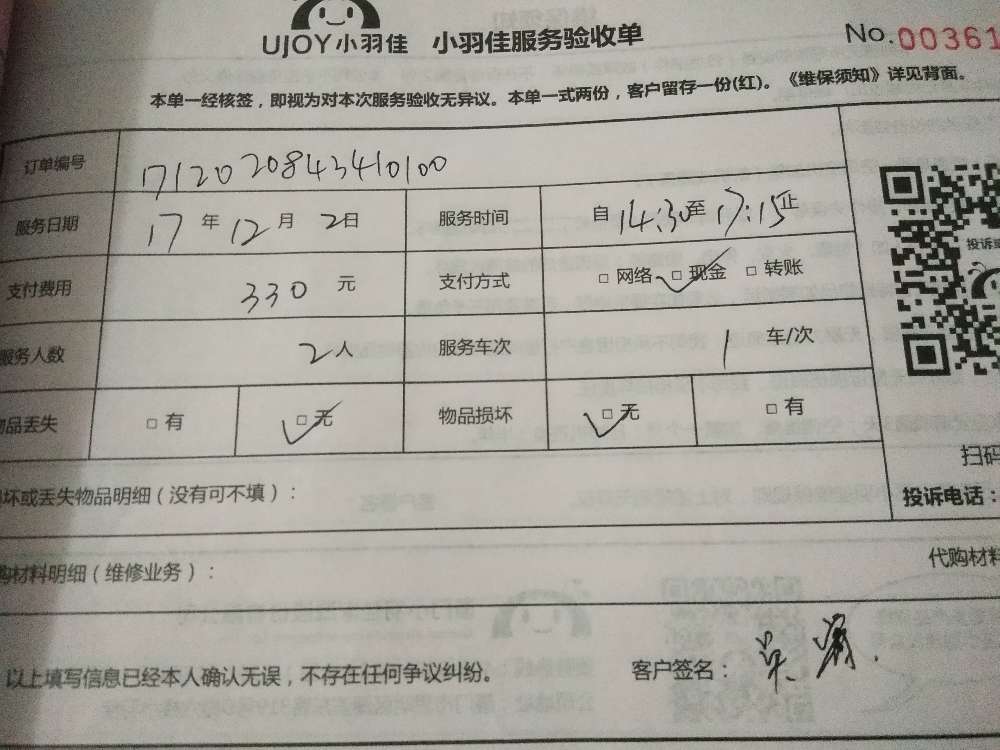 UJOY小羽佳 小羽佳服务验收单 No.00361
本单一经核签，即视为对本次服务验收无异议。本单一式两份，客户留存一份(红)。《维保须知》详见背面。
订单编号 171202084341 0100
服务日期 17年12月2日 服务时间 自14:30至17:15止
支付费用 330元 支付方式 □网络 □现金 □转账
服务人数 2人 服务车次 1车/次
物品丢失 □有 □无 物品损坏 □无 □有
坏或丢失物品明细（没有可不填）： 扫码
投诉电话：
购材料明细（维修业务）： 代购材料
以上填写信息已经本人确认无误，不存在任何争议纠纷。 客户签名：